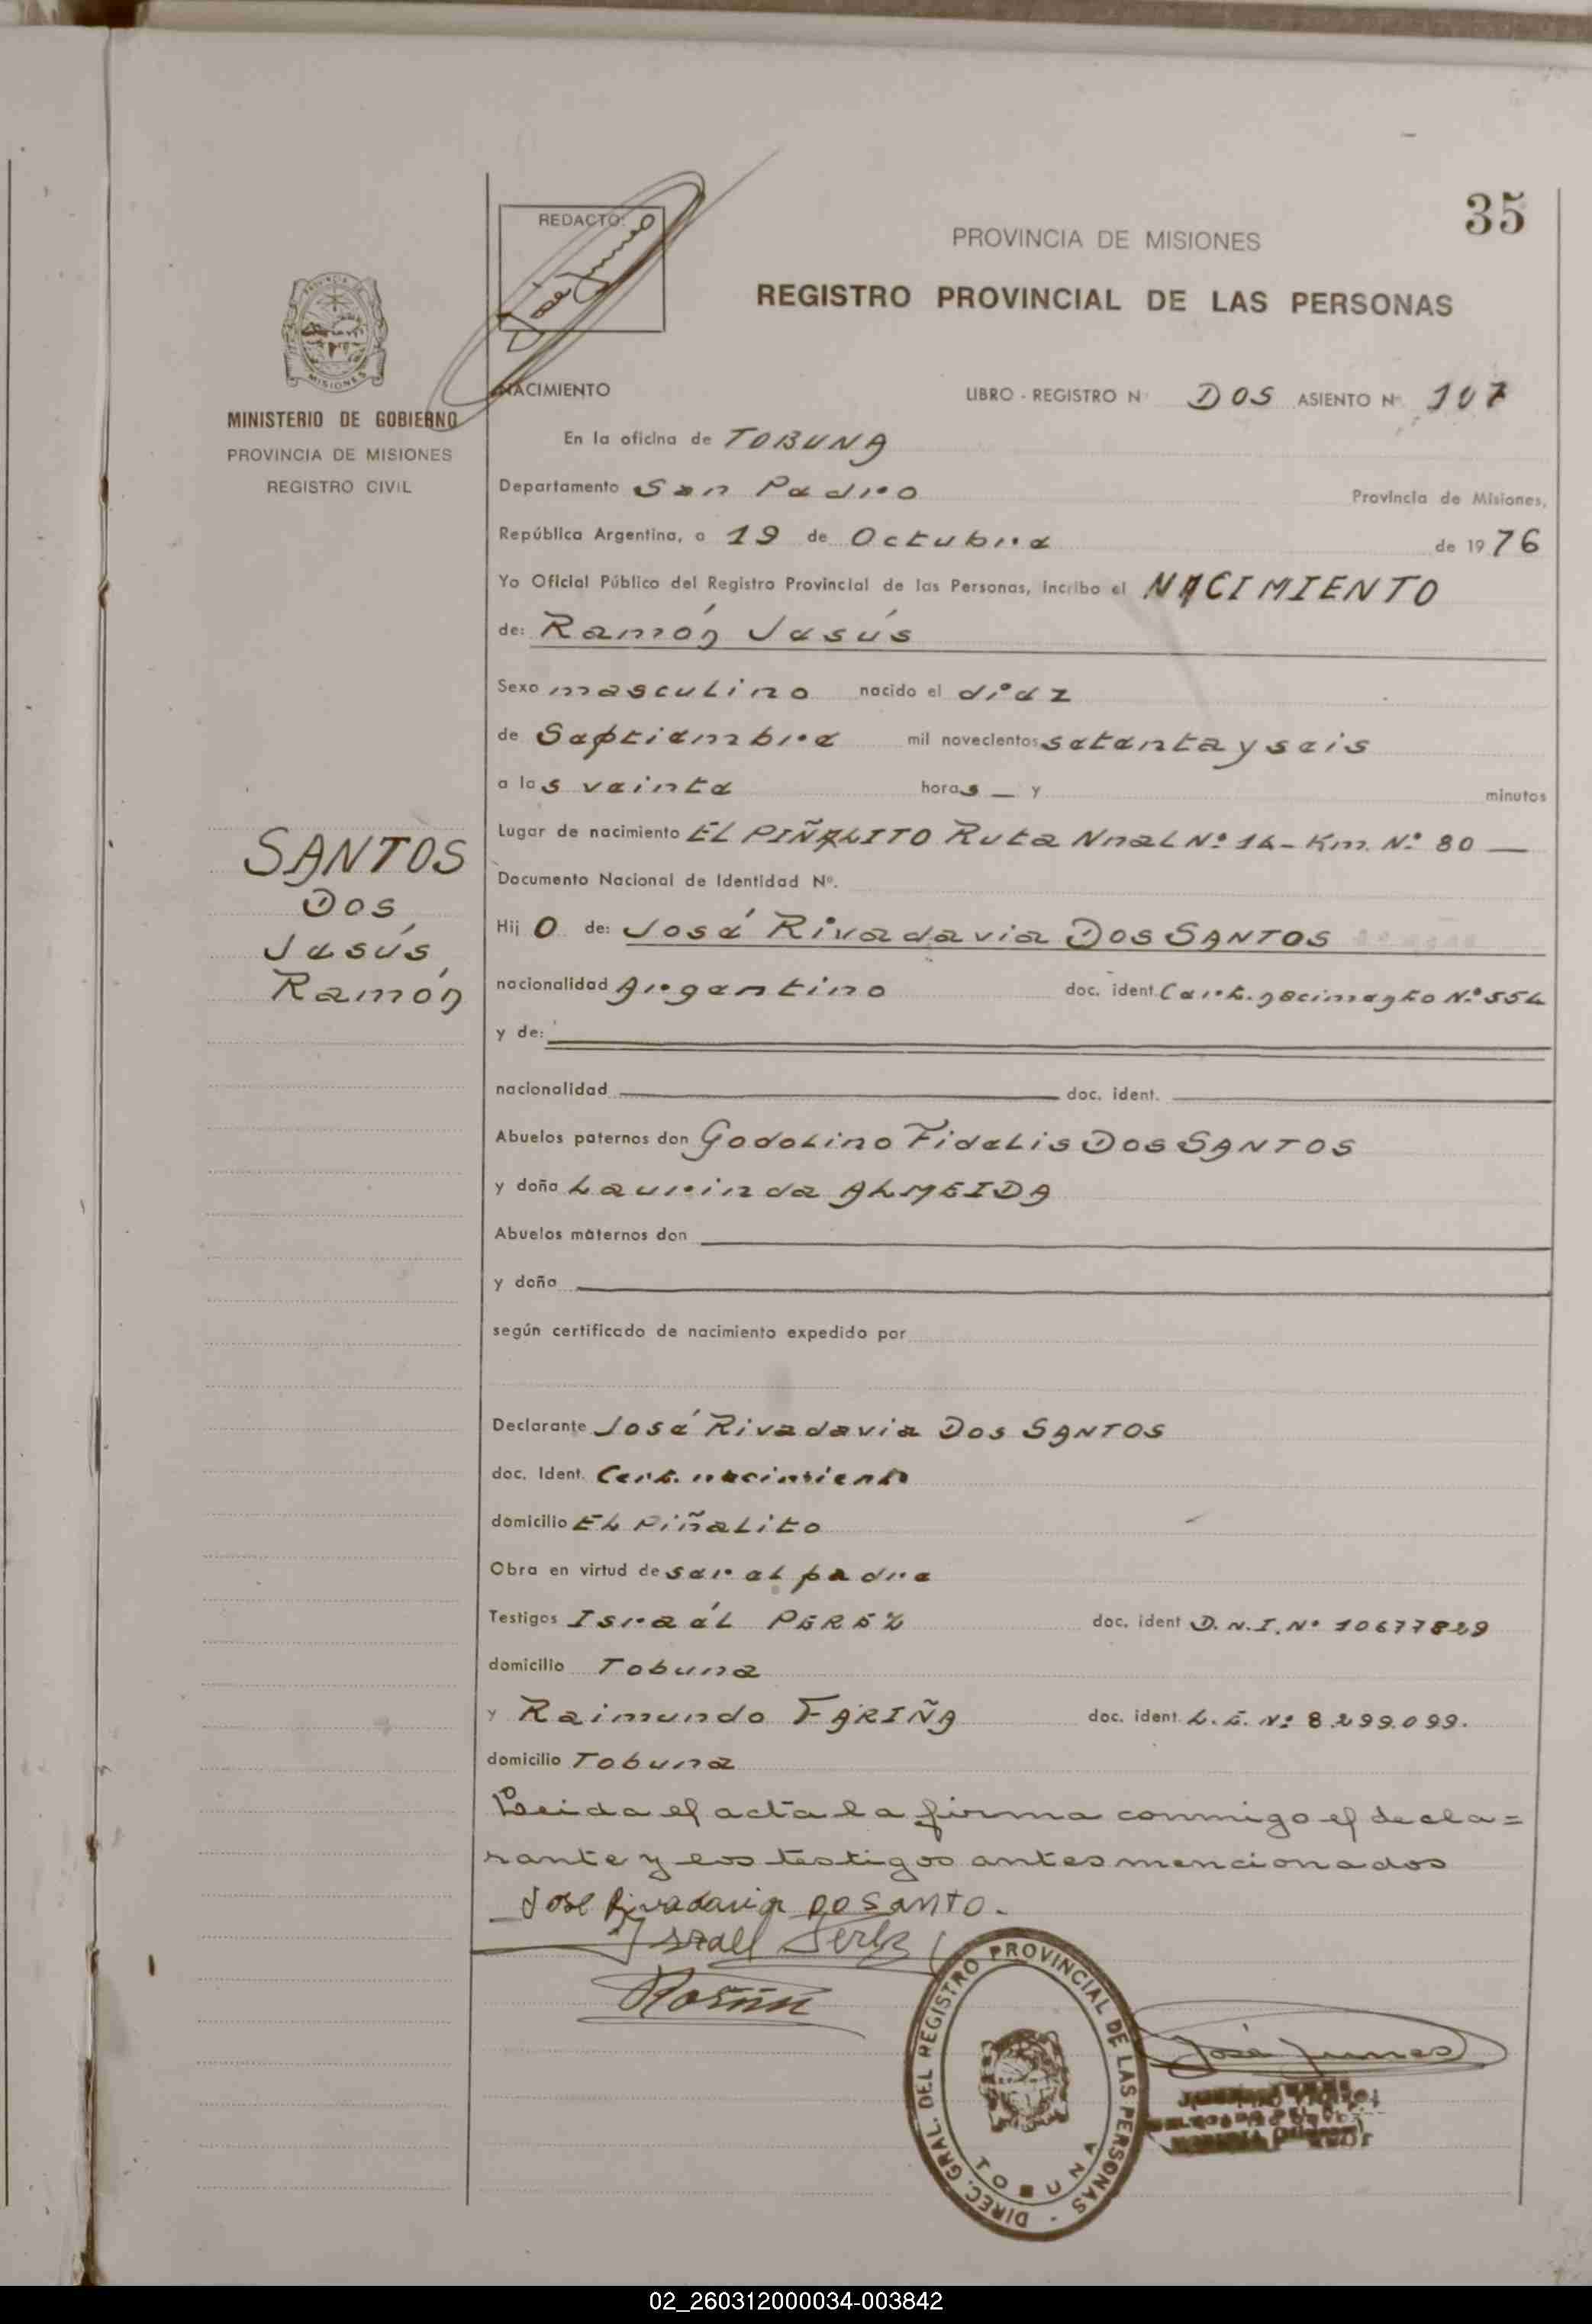 35
REDACTO:
José Junes
PROVINCIA DE MISIONES
REGISTRO PROVINCIAL DE LAS PERSONAS
PROVINCIA DE
MISIONES
MINISTERIO DE GOBIERNO
PROVINCIA DE MISIONES
REGISTRO CIVIL
NACIMIENTO LIBRO - REGISTRO N° DOS ASIENTO N° 107
En la oficina de TOBUNA
Departamento San Pedro Provincia de Misiones,
República Argentina, a 19 de Octubre de 1976
Yo Oficial Público del Registro Provincial de las Personas, incribo el NACIMIENTO
de: Ramón Jesús
Sexo masculino nacido el diez
de Septiembre mil novecientos setenta y seis
a las veinte horas — y minutos
Lugar de nacimiento EL PIÑALITO Ruta Nnal Nº 14 - Km. Nº 80 —
Documento Nacional de Identidad Nº.
SANTOS
DOS
Jesús
Ramón
Hijo de: José Rivadavia DOS SANTOS
nacionalidad Argentino doc. ident. Cert. nacimiento Nº 554
y de:
nacionalidad doc. ident.
Abuelos paternos don Godolino Fidelis DOS SANTOS
y doña Laurinda ALMEIDA
Abuelos maternos don
y doña
según certificado de nacimiento expedido por
Declarante José Rivadavia Dos SANTOS
doc. Ident. Cert. nacimiento
domicilio EL Piñalito
Obra en virtud de ser el padre
Testigos Israél PEREZ doc. ident D.N.I. Nº 10677829
domicilio Tobuna
y Raimundo FARIÑA doc. ident. L.E. Nº 8.299.099.
domicilio Tobuna
Leida el acta la firma conmigo el decla=
rante y los testigos antes mencionados
José Rivadavia DO SANTO.
Israel Perez
José Junes
DIREC. GRAL. DEL REGISTRO PROVINCIAL DE LAS PERSONAS -
TOBUNA
02_260312000034-003842